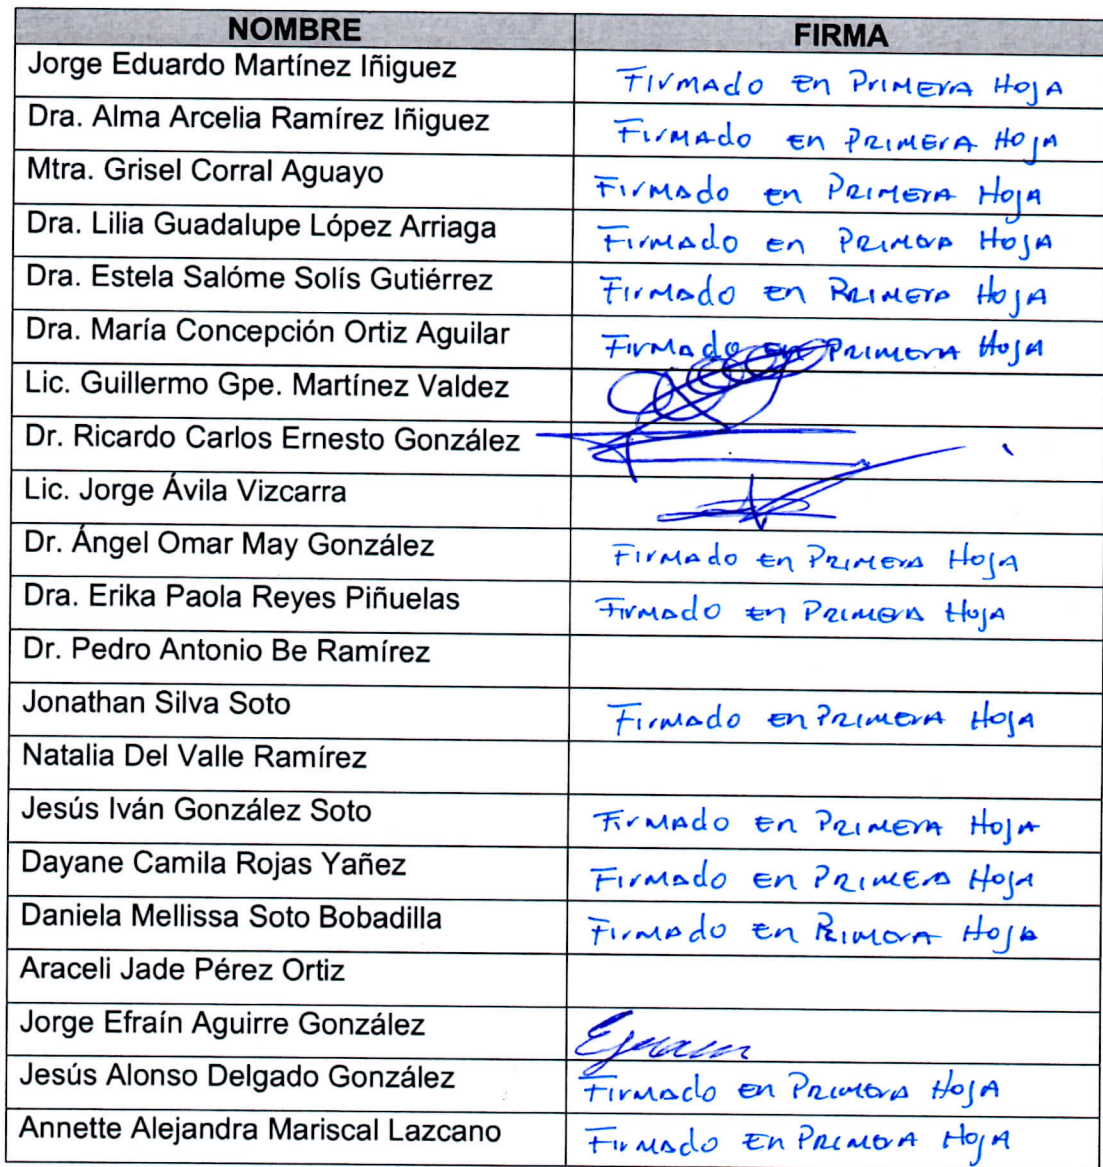 NOMBRE FIRMA
Jorge Eduardo Martínez Iñiguez Firmado en Primera Hoja
Dra. Alma Arcelia Ramírez Iñiguez Firmado en Primera Hoja
Mtra. Grisel Corral Aguayo Firmado en Primera Hoja
Dra. Lilia Guadalupe López Arriaga Firmado en Primera Hoja
Dra. Estela Salóme Solís Gutiérrez Firmado en Primera Hoja
Dra. María Concepción Ortiz Aguilar Firmado en Primera Hoja
Lic. Guillermo Gpe. Martínez Valdez
Dr. Ricardo Carlos Ernesto González
Lic. Jorge Ávila Vizcarra
Dr. Ángel Omar May González Firmado en Primera Hoja
Dra. Erika Paola Reyes Piñuelas Firmado en Primera Hoja
Dr. Pedro Antonio Be Ramírez
Jonathan Silva Soto Firmado en Primera Hoja
Natalia Del Valle Ramírez
Jesús Iván González Soto Firmado en Primera Hoja
Dayane Camila Rojas Yañez Firmado en Primera Hoja
Daniela Mellissa Soto Bobadilla Firmado en Primera Hoja
Araceli Jade Pérez Ortiz
Jorge Efraín Aguirre González
Jesús Alonso Delgado González Firmado en Primera Hoja
Annette Alejandra Mariscal Lazcano Firmado en Primera Hoja